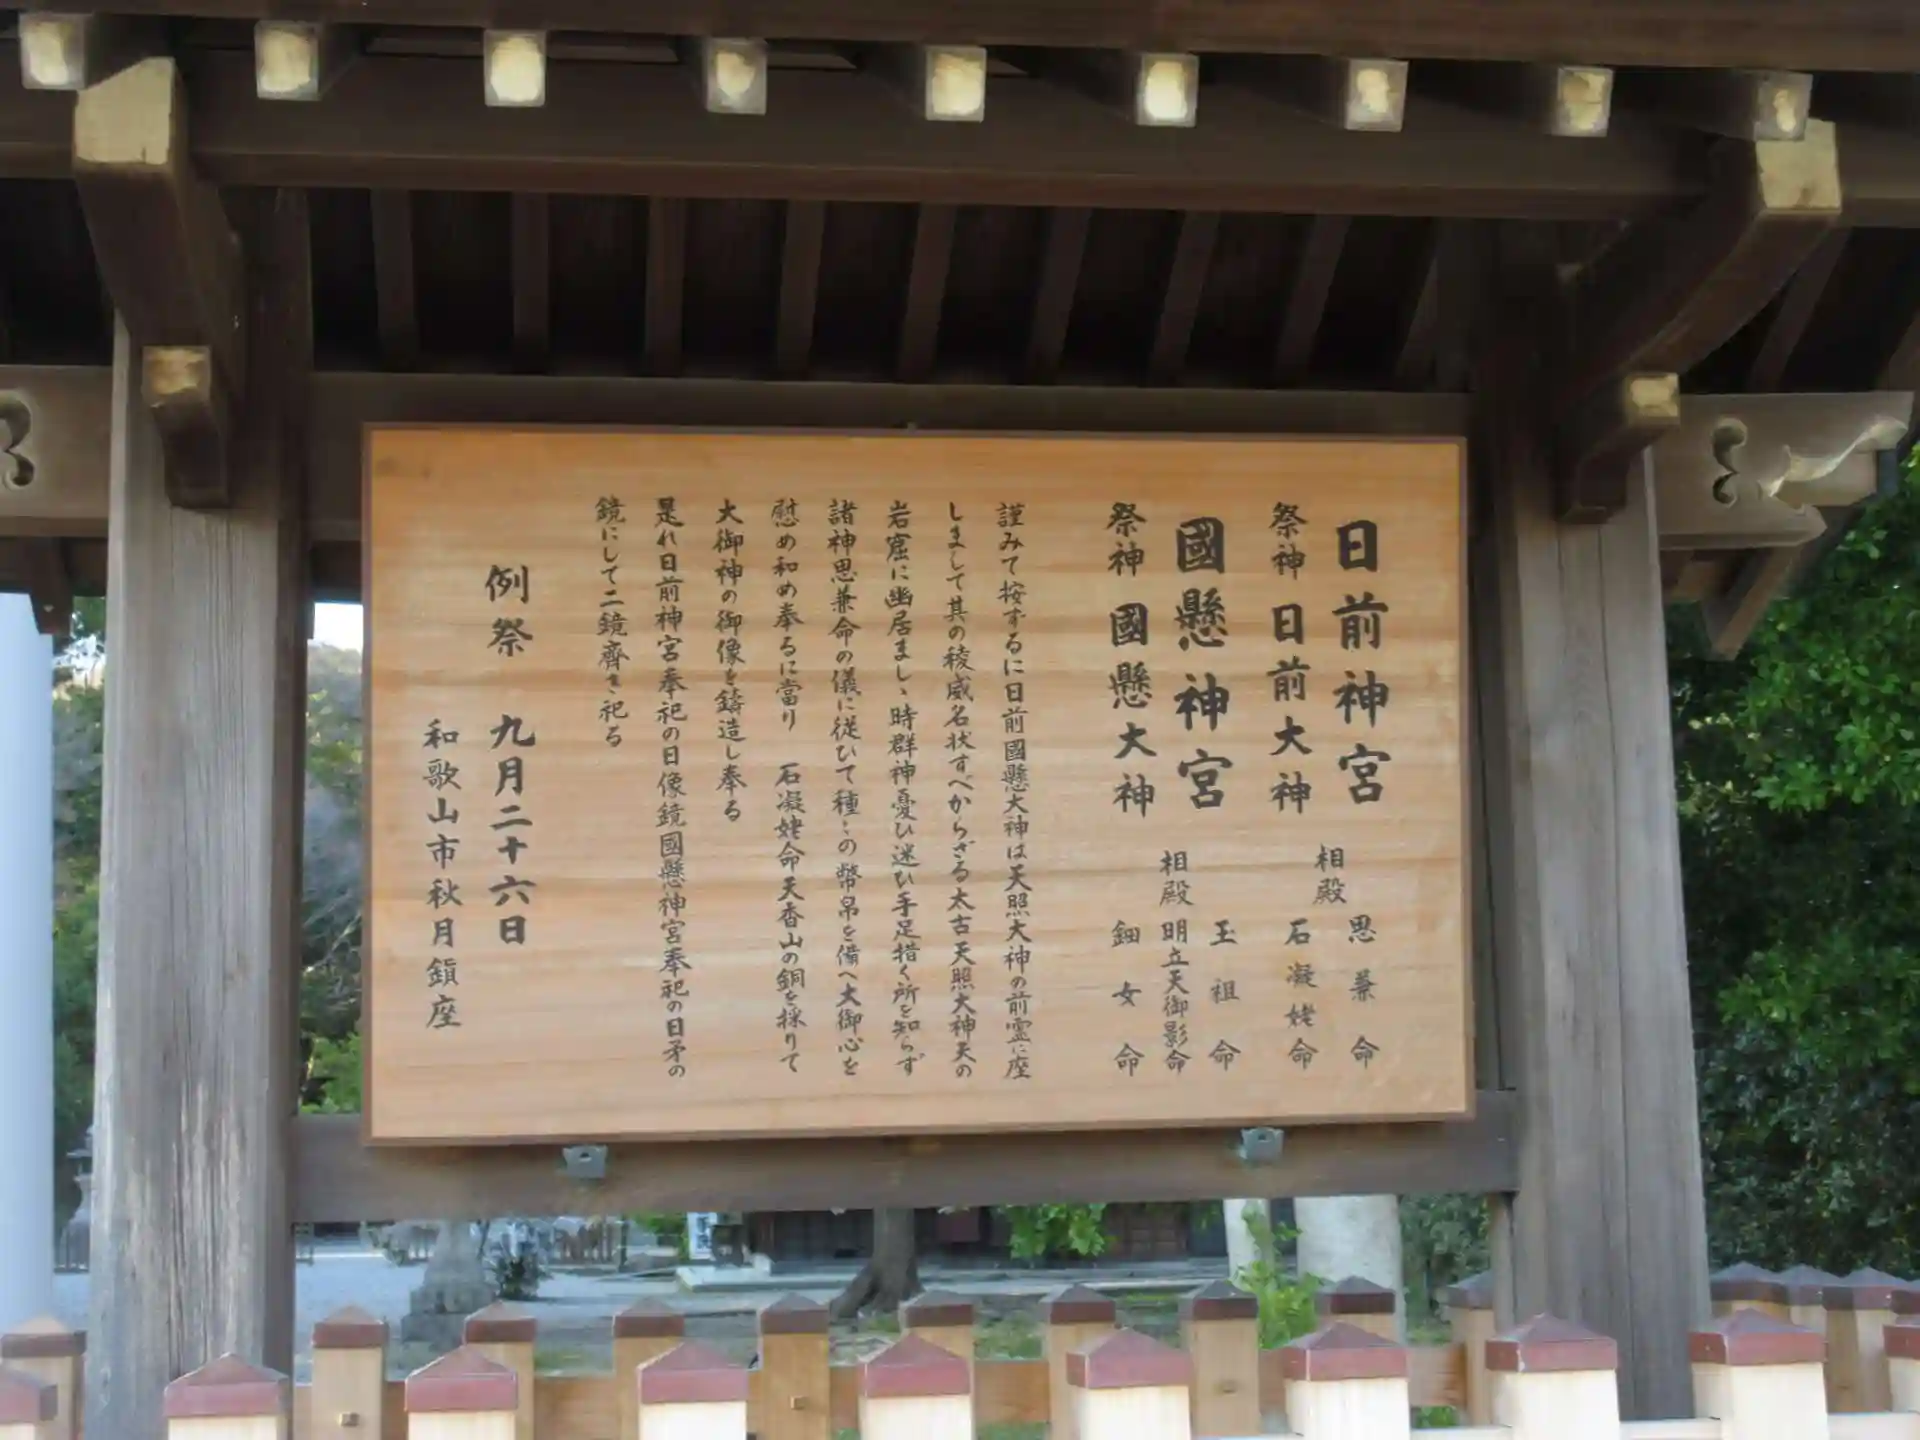 日前神宮
祭神 日前大神
相殿 思兼命
石凝姥命
國懸神宮
祭神 國懸大神
相殿 玉祖命
明立天御影命
鈿女命
謹みて按ずるに日前國懸大神は天照大神の前霊に座
しまして其の稜威名状すべからざる太古天照大神天の
岩窟に幽居ましゝ時群神憂ひ迷ひ手足措く所を知らず
諸神思兼命の儀に従ひて種〻の幣帛を備へ大御心を
慰め和め奉るに當り 石凝姥命天香山の銅を採りて
大御神の御像を鋳造し奉る
是れ日前神宮奉祀の日像鏡國懸神宮奉祀の日矛の
鏡にして二鏡齊き祀る
例祭 九月二十六日
和歌山市秋月鎮座